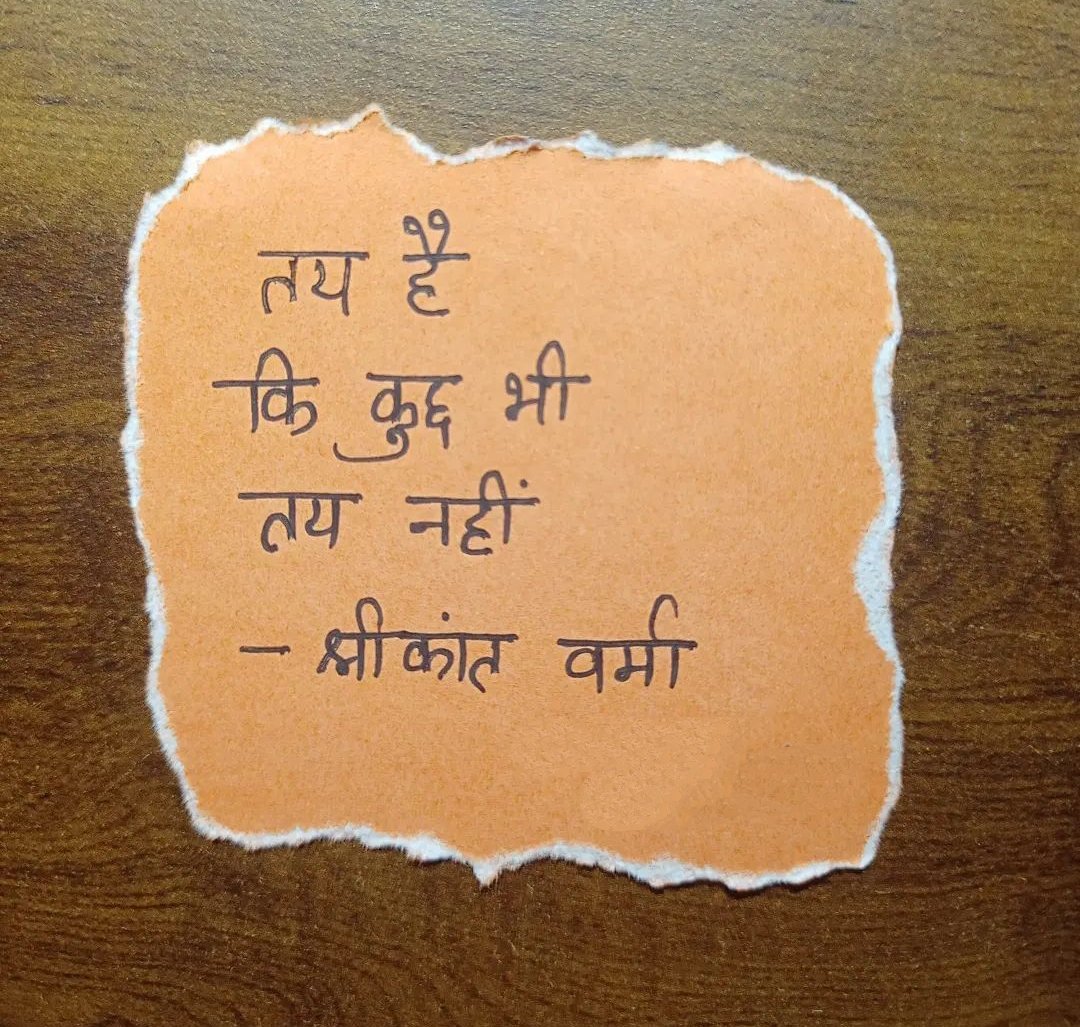 तय है
कि कुछ भी
तय नहीं
- श्रीकांत वर्मा